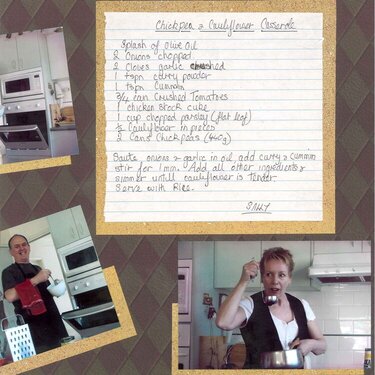 Chickpea & Cauliflower Casserole
Splash of olive oil
2 Onions chopped
2 Cloves garlic crushed
1 tspn curry powder
1 tspn Cummin
3/4 can Crushed Tomatoes
1 chicken stock cube
1 cup chopped parsley (flat leaf)
1/2 cauliflower in pieces
2 Cans Chickpeas (440g)
Saute onions & garlic in oil, add curry & cummin
stir for 1 min. Add all other ingredients &
simmer untill cauliflower is Tender.
Serve with Rice.
SALLY